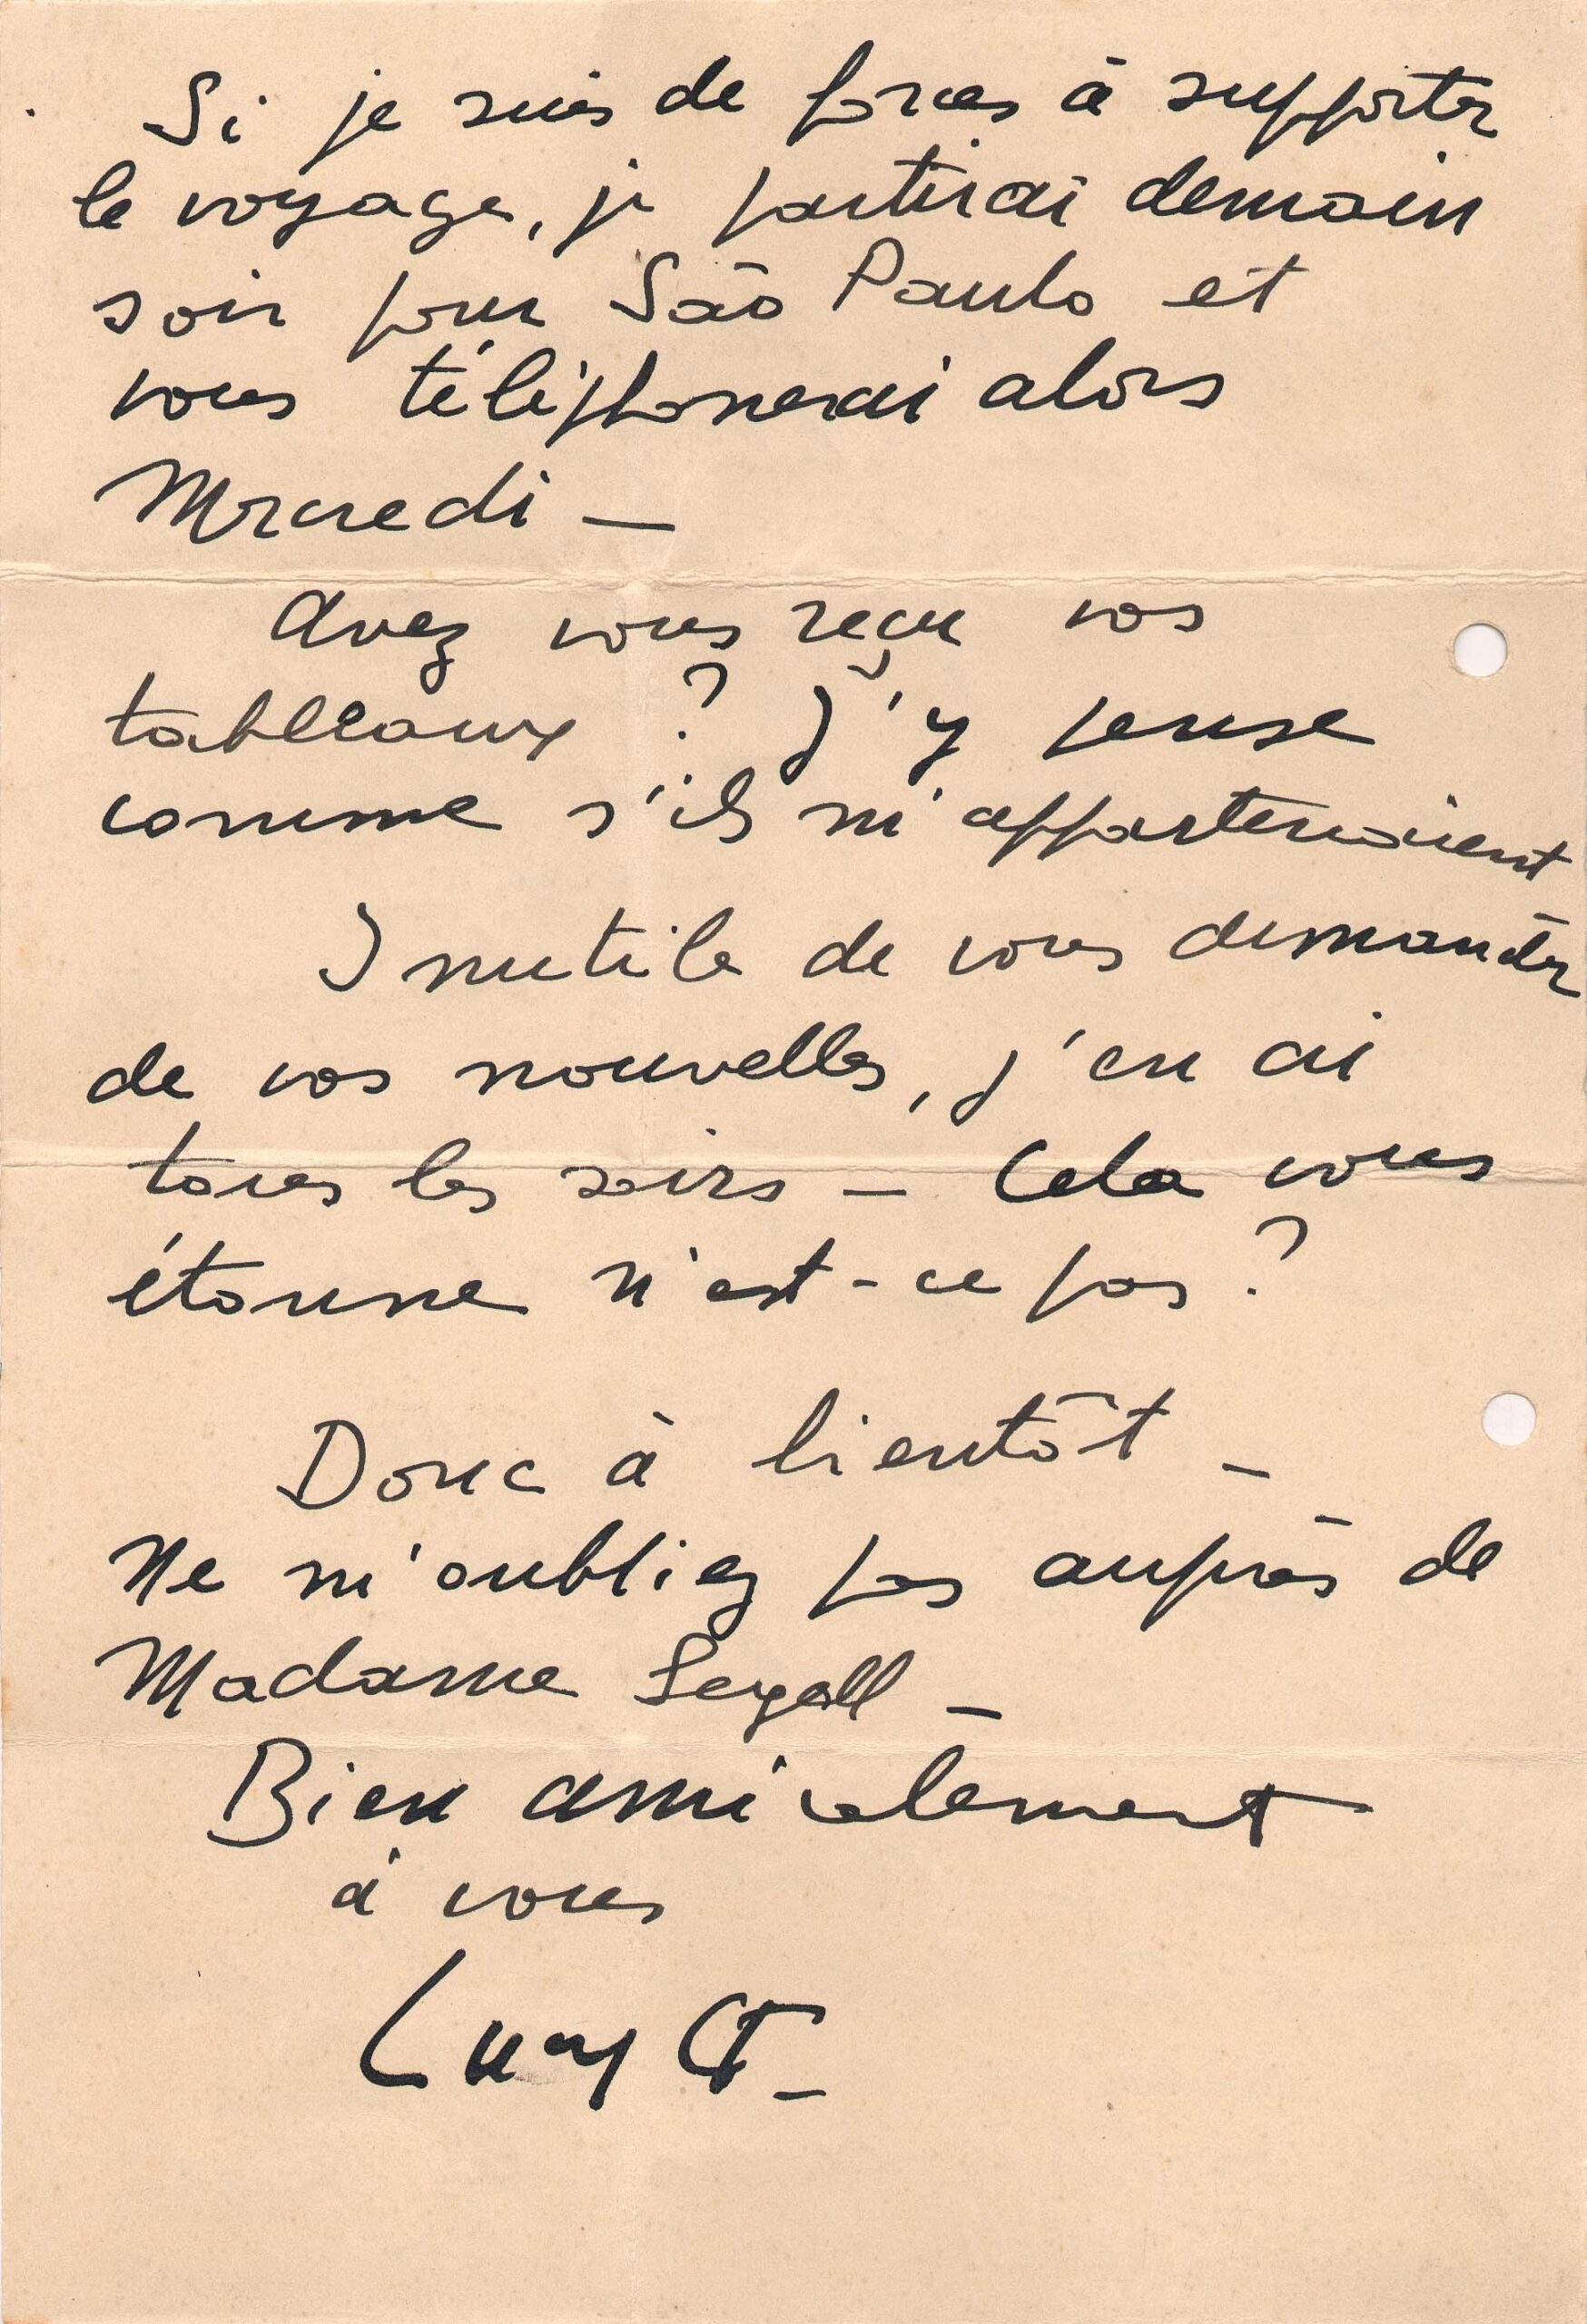 Si je suis de forces à supporter
le voyage, je partirai demain
soir pour São Paulo et
vous téléphonerai alors
Mercredi —
Avez vous reçu vos
tableaux ? J'y pense
comme s'ils m'appartenaient
Inutile de vous demander
de vos nouvelles, j'en ai
tous les soirs — Cela vous
étonne n'est-ce pas ?
Donc à bientôt —
Ne m'oubliez pas auprès de
Madame Segall —
Bien amicalement
à vous